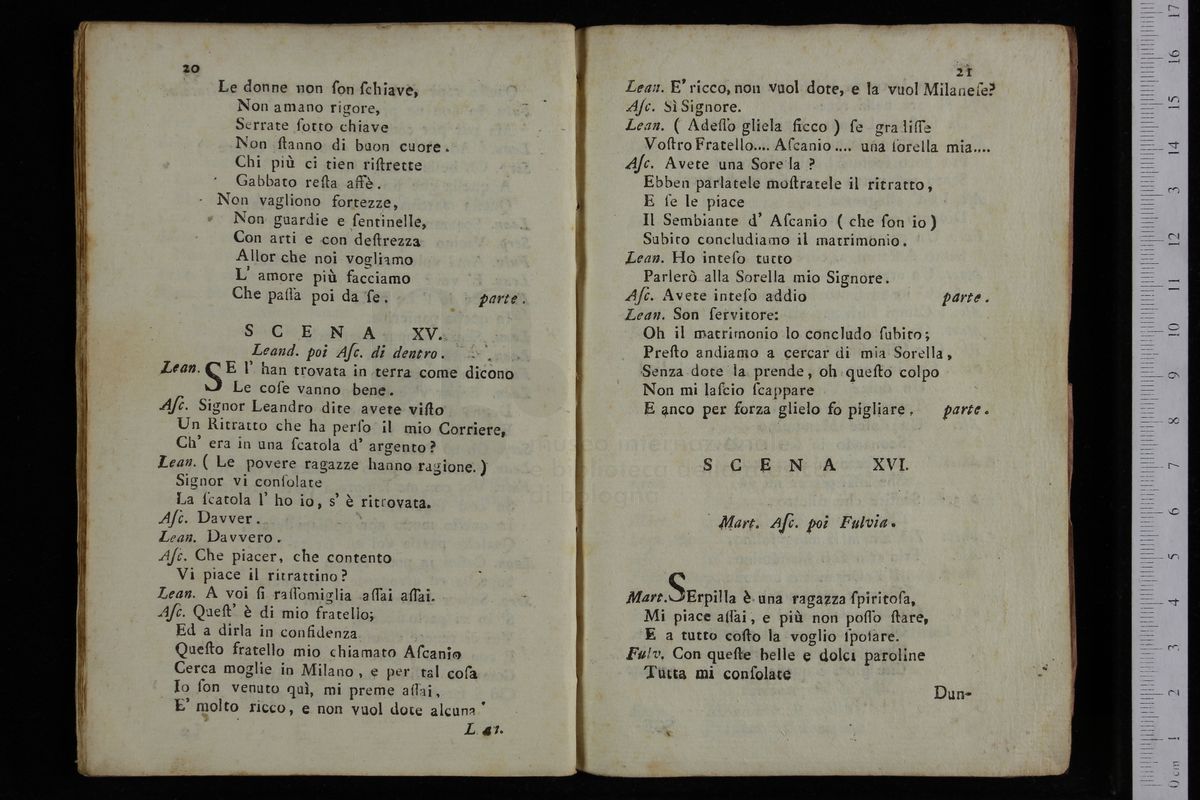 20
Le donne non ſon ſchiave,
Non amano rigore,
Serrate ſotto chiave
Non ſtanno di buon cuore.
Chi più ci tien riſtrette
Gabbato reſta affè.
Non vagliono fortezze,
Non guardie e ſentinelle,
Con arti e con deſtrezza
Allor che noi vogliamo
L' amore più facciamo
Che paſſa poi da ſe. parte.
SCENA XV.
Leand. poi Aſc. di dentro.
Lean. SE l' han trovata in terra come dicono
Le coſe vanno bene.
Aſc. Signor Leandro dite avete viſto
Un Ritratto che ha perſo il mio Corriere,
Ch' era in una ſcatola d' argento?
Lean. ( Le povere ragazze hanno ragione. )
Signor vi conſolate
La ſcatola l' ho io, s' è ritrovata.
Aſc. Davver.
Lean. Davvero.
Aſc. Che piacer, che contento
Vi piace il ritrattino?
Lean. A voi ſi raſſomiglia aſſai aſſai.
Aſc. Queſt' è di mio fratello;
Ed a dirla in confidenza
Queſto fratello mio chiamato Aſcanio
Cerca moglie in Milano, e per tal coſa
Io ſon venuto quì, mi preme aſſai,
E' molto ricco, e non vuol dote alcuna
21
Lean. E' ricco, non vuol dote, e la vuol Milaneſe?
Aſc. Sì Signore.
Lean. ( Adeſſo gliela ficco ) ſe gradiſſe
Voſtro Fratello.... Aſcanio.... una ſorella mia....
Aſc. Avete una Sorella ?
Ebben parlatele moſtratele il ritratto,
E ſe le piace
Il Sembiante d' Aſcanio ( che ſon io )
Subito concludiamo il matrimonio.
Lean. Ho inteſo tutto
Parlerò alla Sorella mio Signore.
Aſc. Avete inteſo addio parte.
Lean. Son ſervitore:
Oh il matrimonio lo concludo ſubito;
Preſto andiamo a cercar di mia Sorella,
Senza dote la prende, oh queſto colpo
Non mi laſcio ſcappare
E anco per forza glielo fo pigliare. parte.
SCENA XVI.
Mart. Aſc. poi Fulvia.
Mart. SErpilla è una ragazza ſpiritoſa,
Mi piace aſſai, e più non poſſo ſtare,
E a tutto coſto la voglio ſpoſare.
Fulv. Con queſte belle e dolci paroline
Tutta mi conſolate
Dun-
museo internazionale
e biblioteca della musica
di bologna
0 cm 1 2 3 4 5 6 7 8 9 10 11 12 13 14 15 16 17